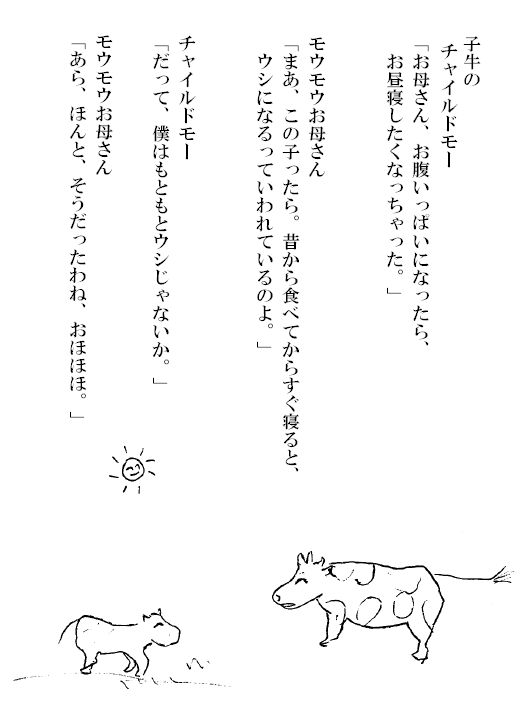 子牛の
チャイルドモー
「お母さん、お腹いっぱいになったら、
お昼寝したくなっちゃった。」
モウモウお母さん
「まあ、この子ったら。昔から食べてからすぐ寝ると、
ウシになるっていわれているのよ。」
チャイルドモー
「だって、僕はもともとウシじゃないか。」
モウモウお母さん
「あら、ほんと、そうだったわね、おほほほ。」